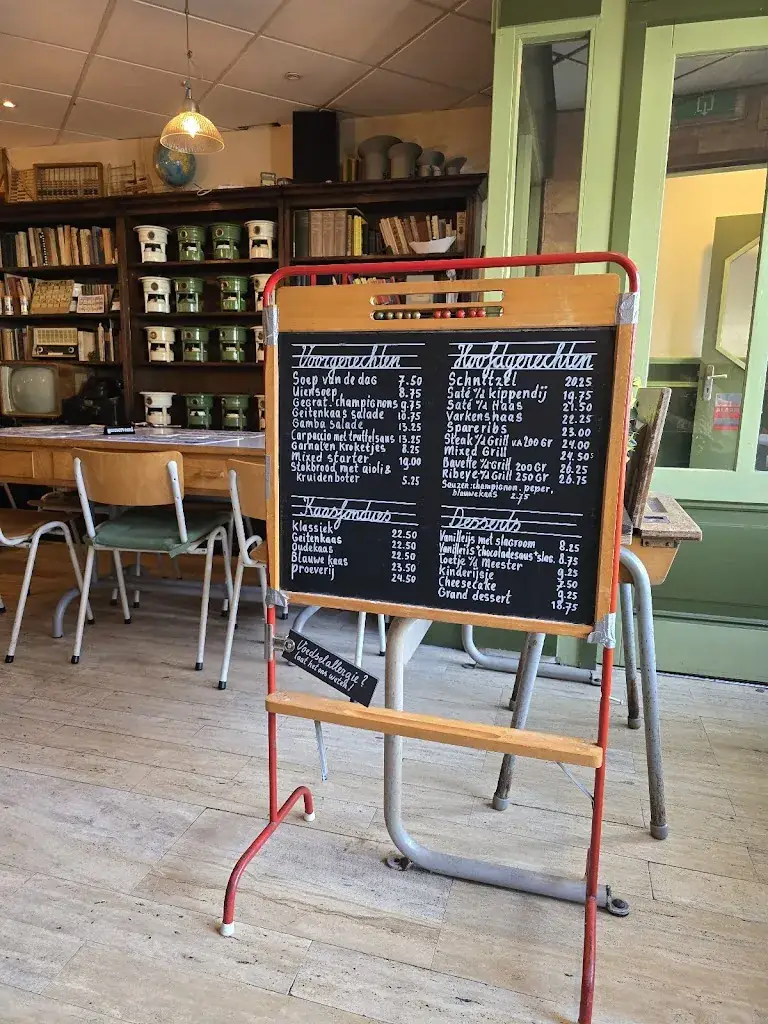 Voorgerechten
Soep van de dag 7.50
Uiensoep 8.75
Gegrat. champignons 9.75
Geitenkaas salade 10.75
Gamba salade 13.25
Carpaccio met truffelsaus 13.25
Garnalen Kroketjes 8.25
Mixed starter 19.00
Stokbrood met aioli &
kruidenboter 5.25
Kaasfondues
Klassiek 22.50
Geitenkaas 22.50
Oudekaas 22.50
Blauwe kaas 23.50
Proeverij 24.50
Hoofdgerechten
Schnitzel 20.25
Saté v/d kippendij 19.75
Saté v/d Haas 21.50
Varkenshaas 22.25
Spareribs 23.00
Steak v/d Grill v.a 200 Gr 24.00
Mixed Grill 24.50
Bavette v/d Grill 200 Gr 26.25
Ribeye v/d Grill 250 Gr 26.75
Sauzen: champignon, peper,
blauwekaas 2.75
Desserts
Vanilleijs met slagroom 8.25
Vanilleijs + chocoladesaus + slag. 8.75
Toetje v/d Meester 9.25
Kinderijsje 7.50
Cheesecake 9.25
Grand dessert 18.75
Voedselallergie?
laat het ons weten!